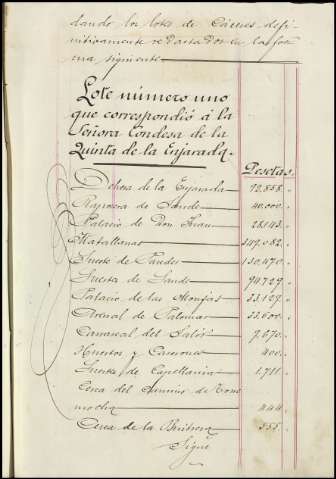 dando los lotes de Cáceres defi-
nitivamente repartidos en la for-
ma siguiente
Lote número uno
que correspondió á la
Señora Condesa de la
Quinta de la Enjarada.
Pesetas.
Dehesa de la Enjarada 72.558..
de Sande 40.000.
Palacio de Don Juan 28.143..
Matallanas 349.082..
de 130.470..
de Sande 94.729.
Palacio de las 33.129..
de Palomar 33.600..
Carrascal del Salor 7.670..
Huertos y Caserones 400..
Suerte de Capellania 1.711..
Cerca del Camino de Torre
mocha 444..
Cerca de la 555..
Sigue